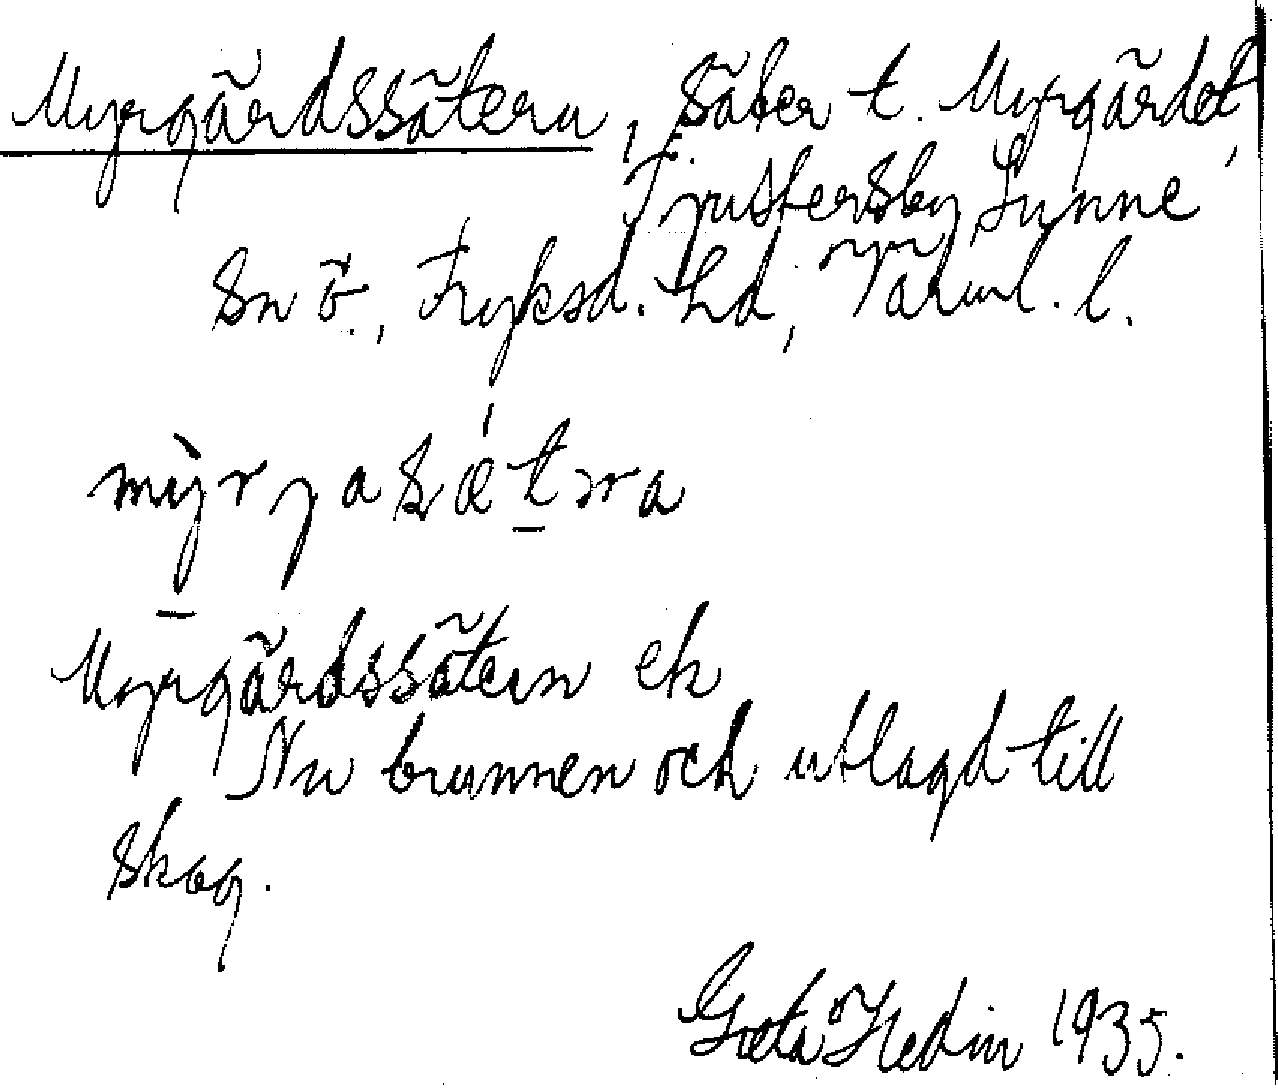 Myrgärdssätern, Säter t. Myrgärdet,
F. Tjustersby, Sunne
Sn Ö., Fryksd. hd, Värml. l.
Myrgärdssätern ek
Nu brunnen och utlagd till
skog.
Greta Hedin 1935.